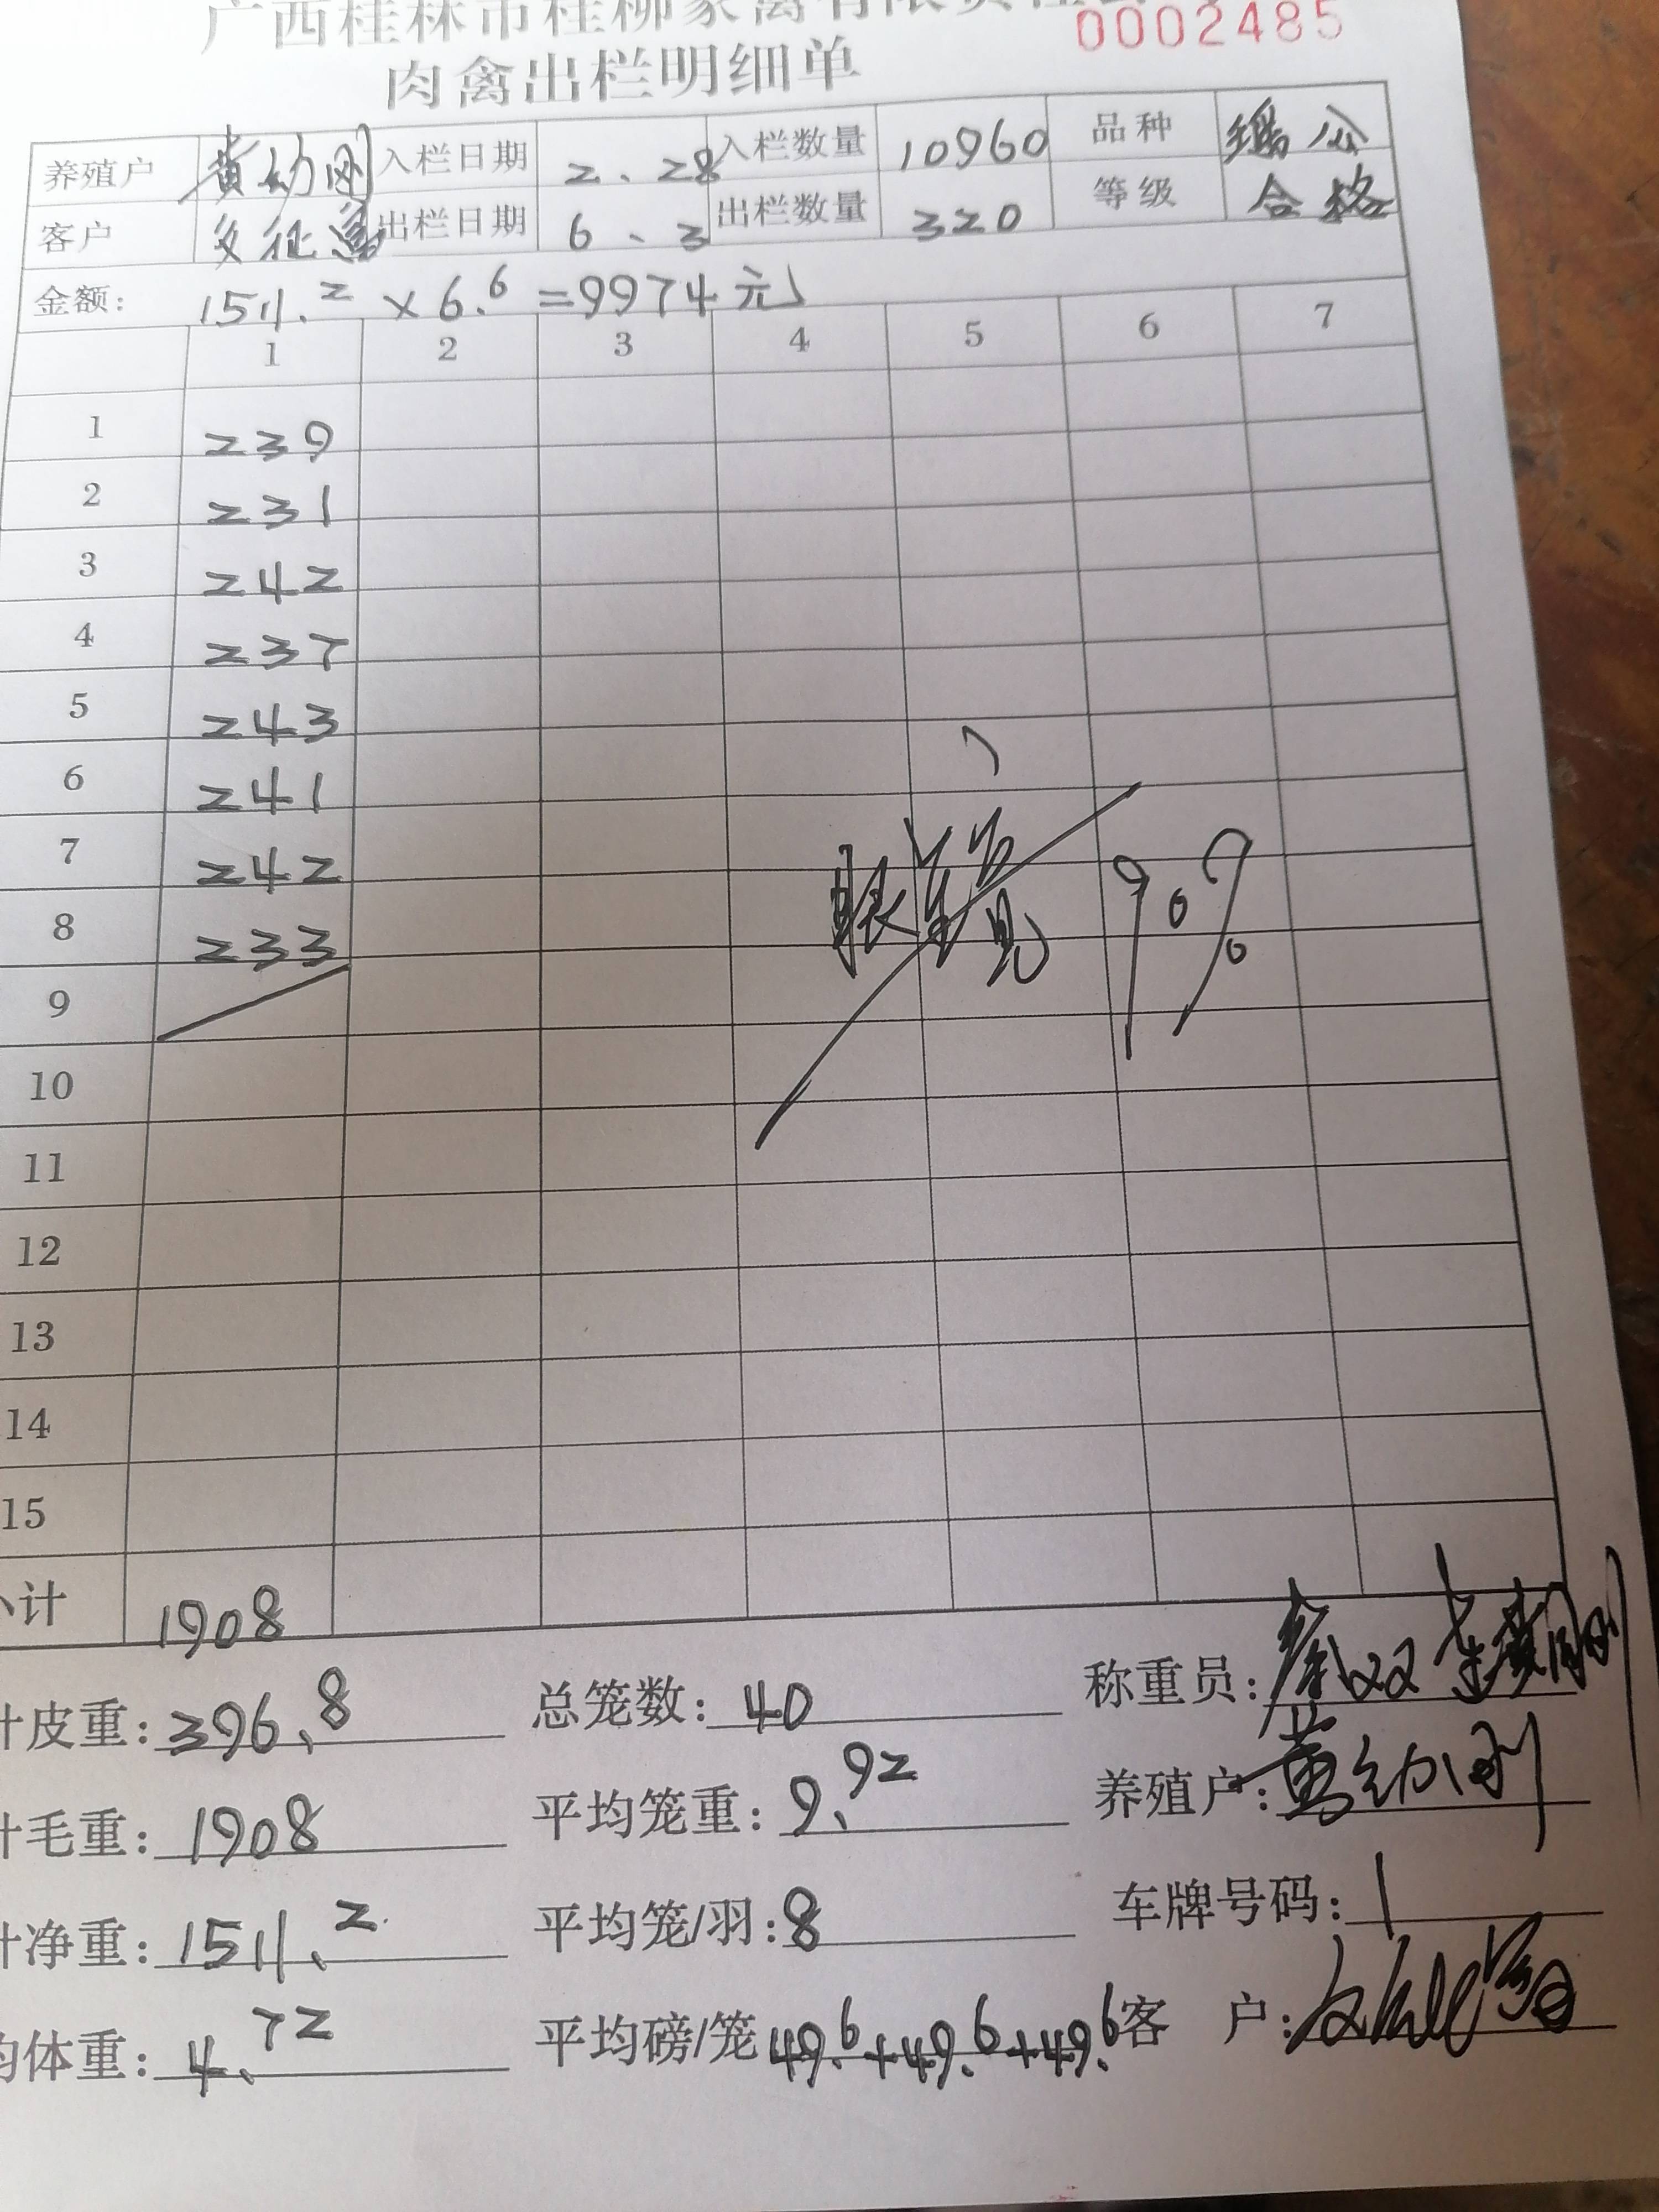 广西桂林市桂柳家禽有限责任公司
0002485
肉禽出栏明细单
养殖户 黄幼刚 入栏日期 2、28 入栏数量 10960 品种 瑶公
客户 出栏日期 6、3 出栏数量 320 等级 合格
金额: 1511.2 × 6.6 = 9974元
1 2 3 4 5 6 7
1 239
2 231
3 242
4 237
5 243
6 241
7 242
8 233
9
10
11
12
13
14
15
小计 1908
计皮重: 396.8 总笼数: 40 称重员:
计毛重: 1908 平均笼重: 9.92 养殖户: 黄幼刚
计净重: 1511.2 平均笼/羽: 8 车牌号码:
均体重: 4.72 平均磅/笼 49.6+49.6+49.6 客 户: